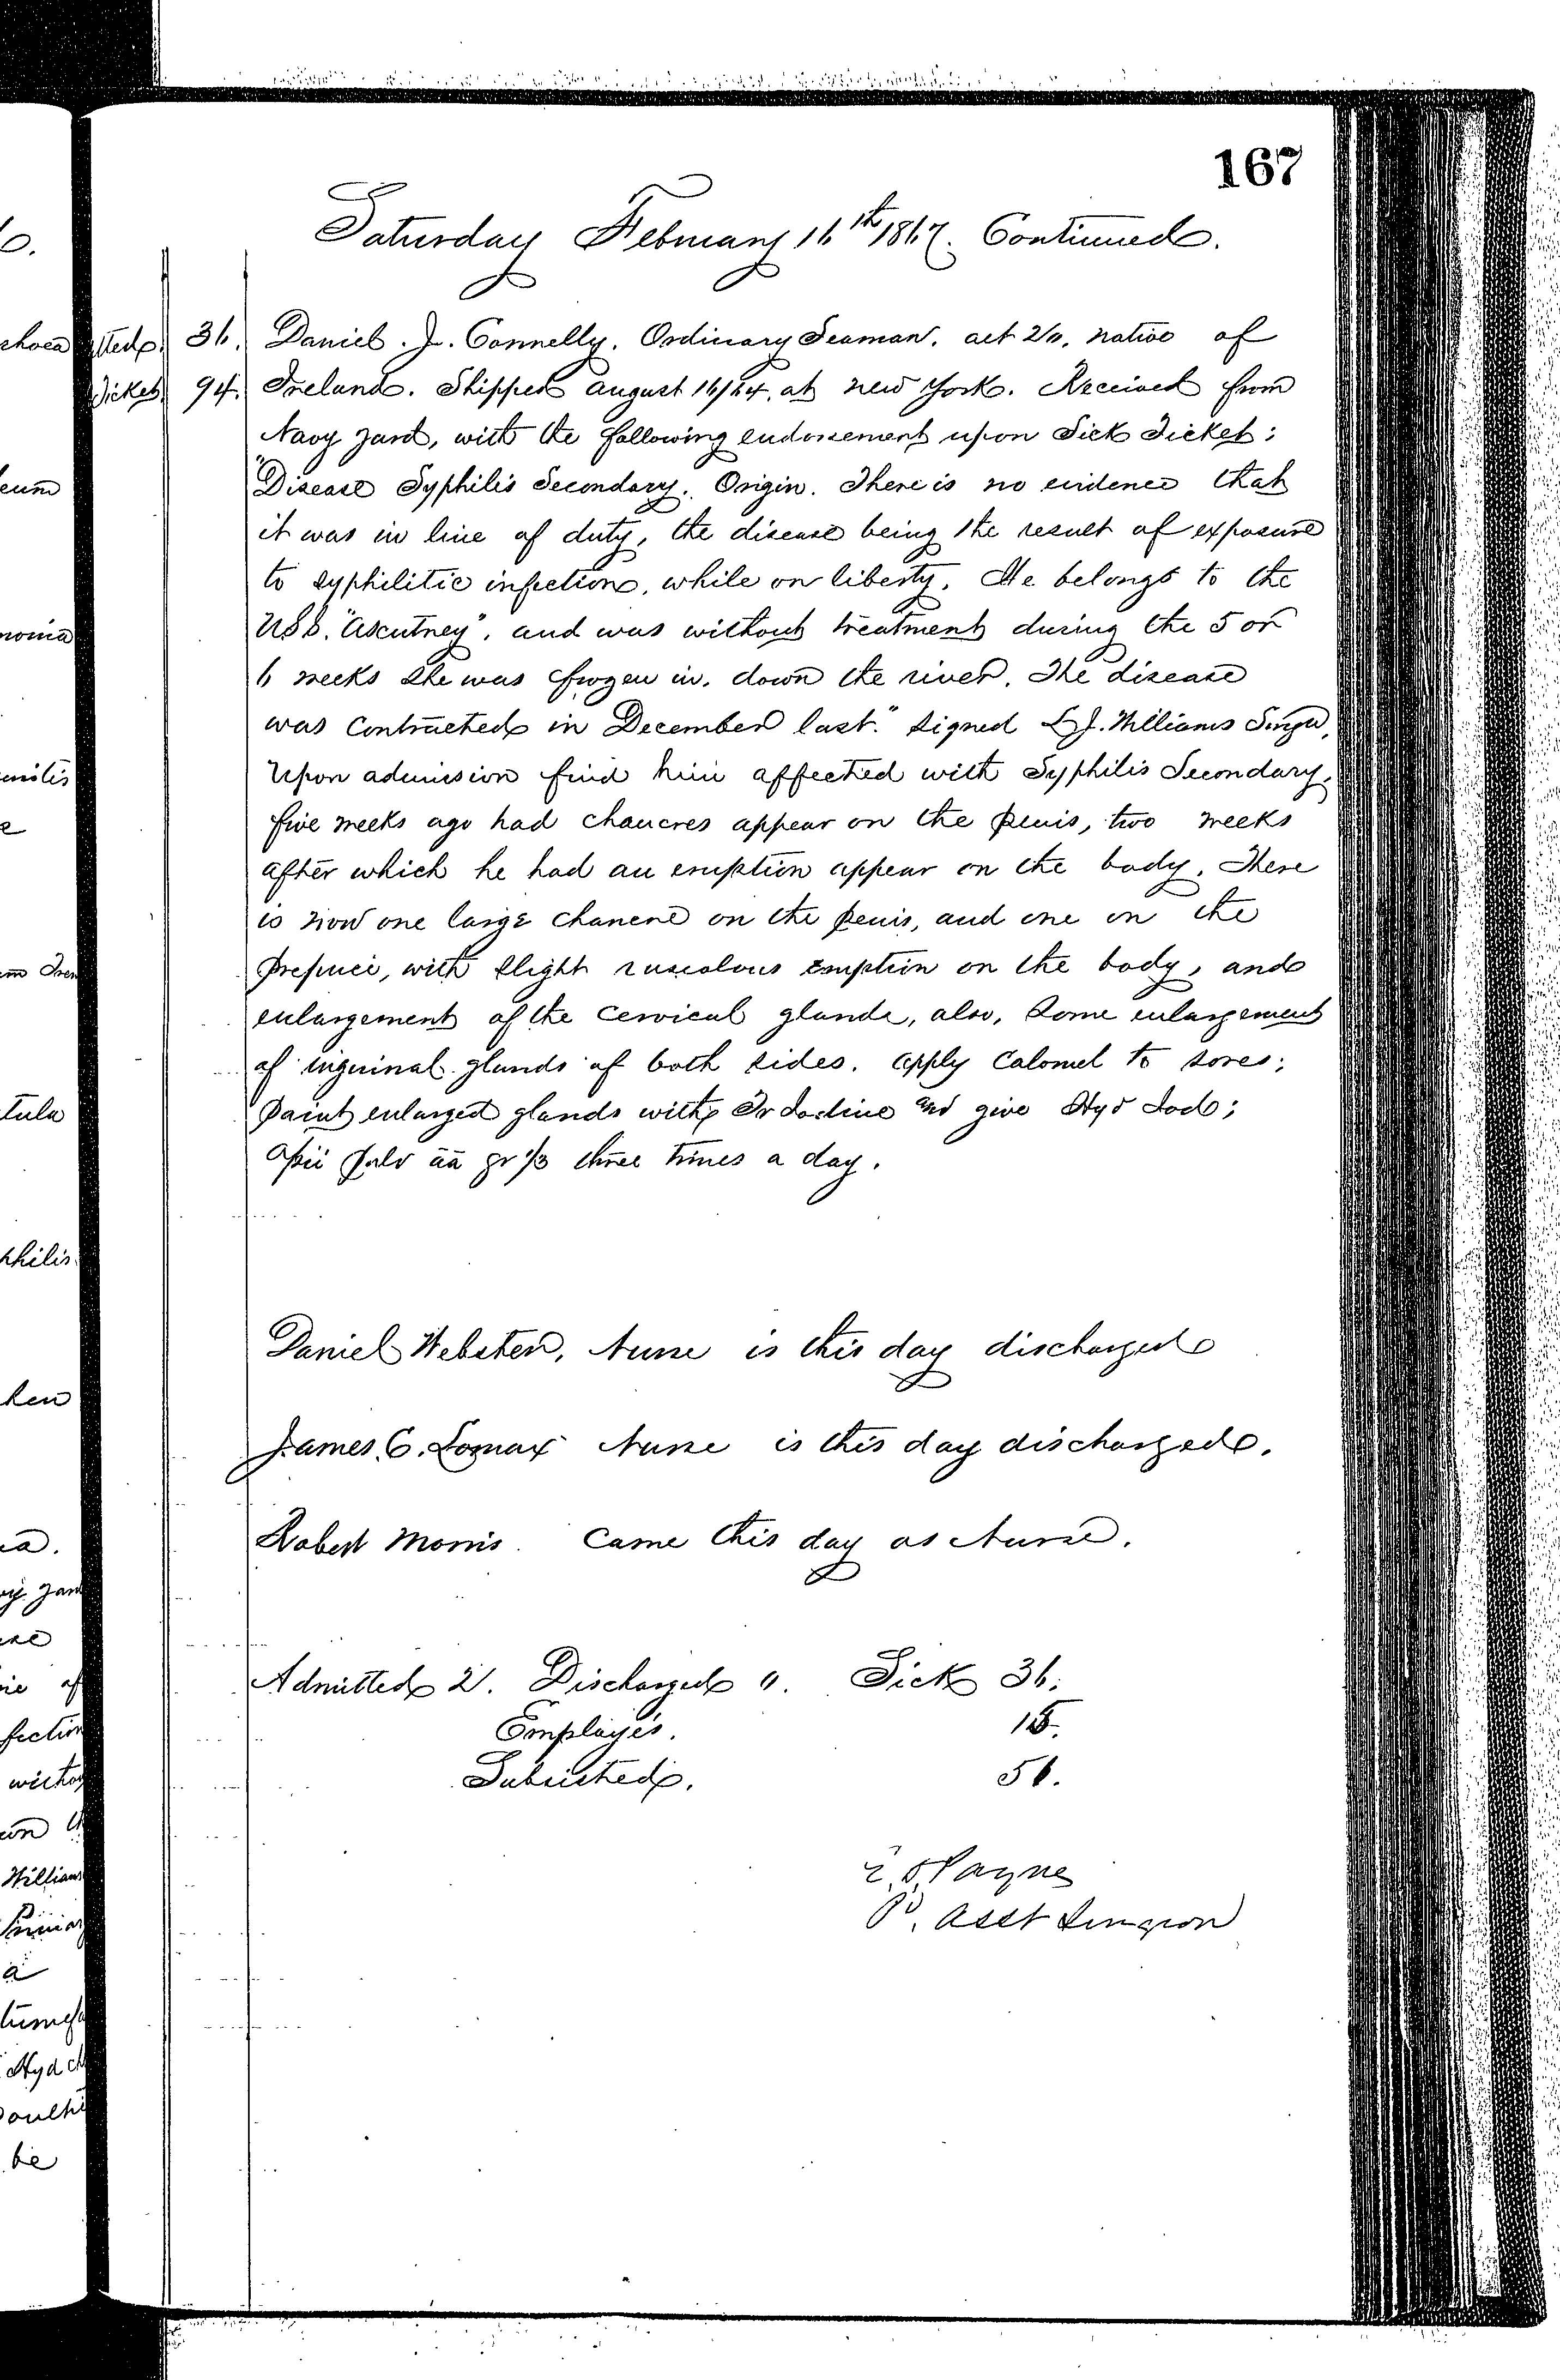 167
Saturday February 16th 1867. Continued.
Admitted. 36. Daniel. J. Connelly. Ordinary Seaman. aet 20. native of
Ticket. 94. Ireland. Shipped august 16/64. at new York. Received from
Navy Yard, with the following endorsement upon Sick Ticket:
"Disease Syphilis Secondary. Origin. There is no evidence that
it was in line of duty, the disease being the result of exposure
to syphilitic infection, while on liberty. He belongs to the
USS. "Ascutney", and was without treatment during the 5 or
6 weeks she was frozen in, down the river. The disease
was contracted in December last." Signed L J. Williams Surgn.
Upon admission find him affected with Syphilis Secondary.
five weeks ago had chancres appear on the penis, two weeks
after which he had an eruption appear on the body. There
is now one large chancre on the penis, and one on the
prepuce, with slight eruption on the body, and
enlargement of the cervical glands, also, some enlargement
of inguinal glands of both sides. apply calomel to sores;
paint enlarged glands with Tr Iodine and give Hyd Iod;
Opii Pulv āā gr 1/3 three times a day.
Daniel Webster, Nurse is this day discharged
James. C. Lomax Nurse is this day discharged.
Robert Morris. Came this day as Nurse.
Admitted 2. Discharged 0. Sick 36.
Employés. 15.
Subsisted. 51.
Payne
Pd. Asst Surgeon